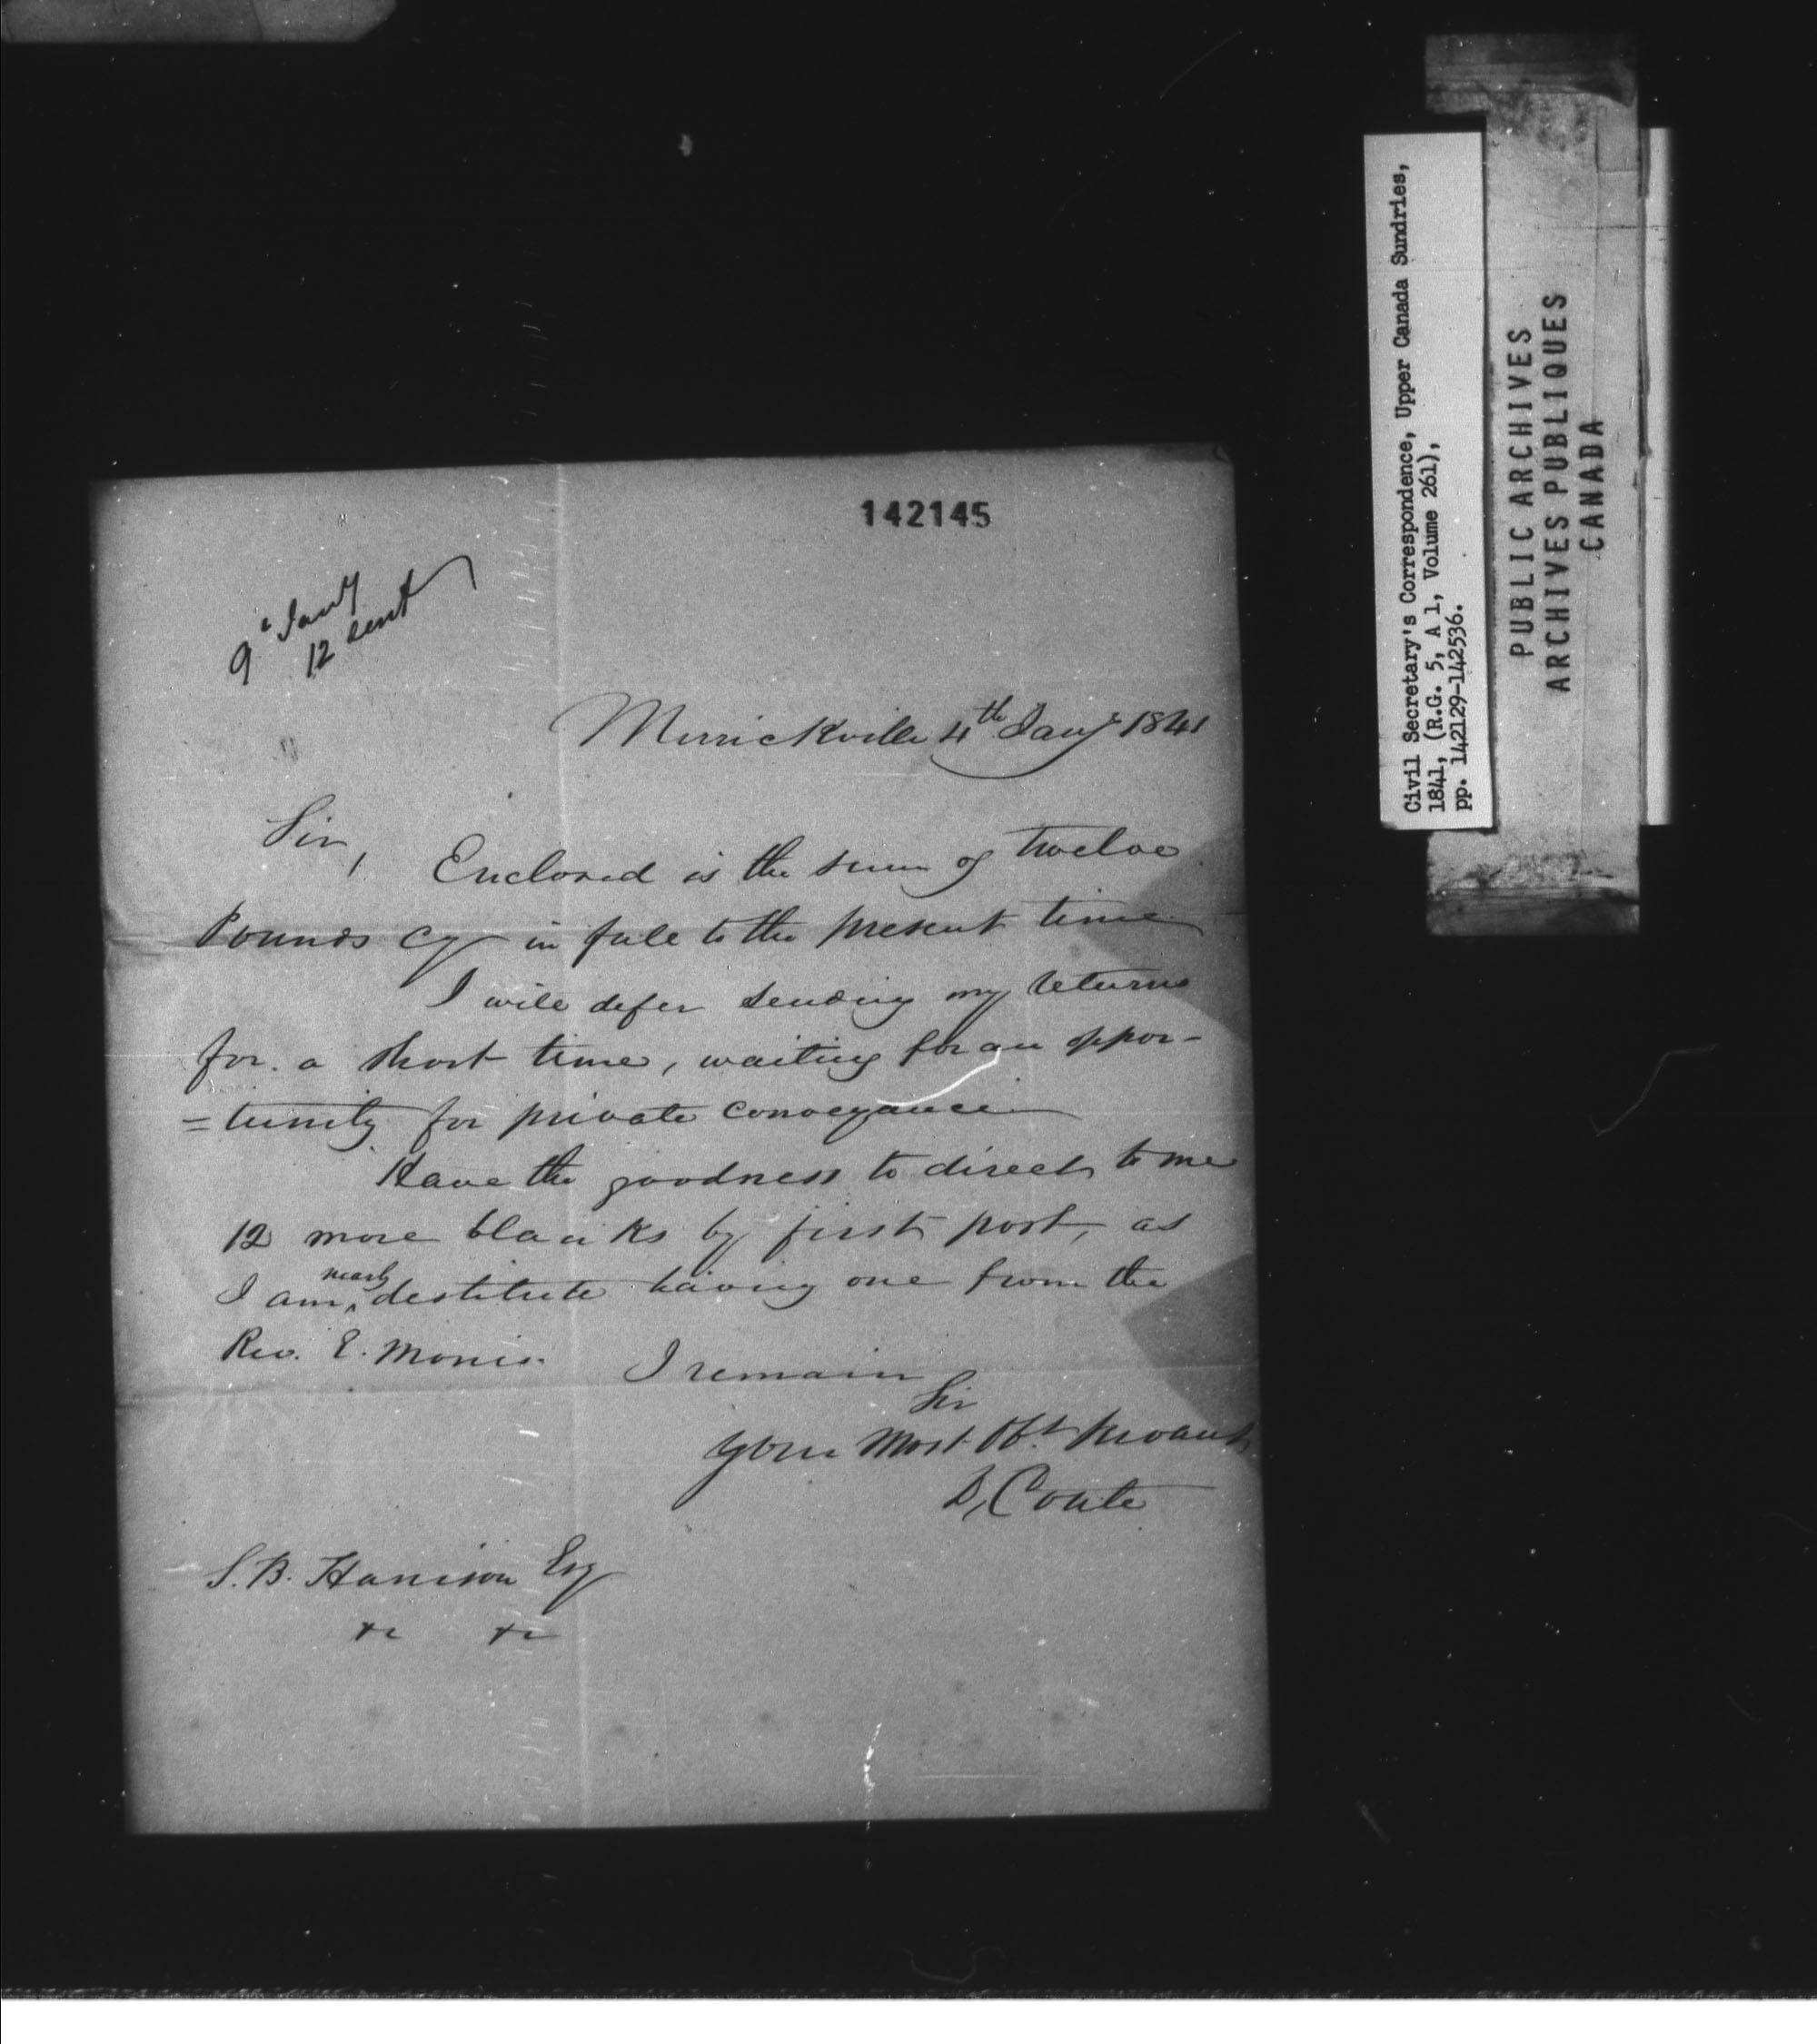 142145
9th Jany
12 sent
Merrickville 4th Jany 1841
Sir, Enclosed is the sum of twelve
Pounds Cy in full to the present time
I will defer sending my returns
for a short time, waiting for an oppor-
=tunity for private conveyance
Have the goodness to direct to me
12 more blanks by first post, as
I am nearly destitute having one from the
Rev. E. Morris. I remain
Sir
Your Most Obt Servant
D, Conte
S. B. Harrison Esq
&c &c
Civil Secretary's Correspondence, Upper Canada Sundries,
1841, (R.G. 5, A 1, Volume 261),
pp. 142129-142536.
PUBLIC ARCHIVES
ARCHIVES PUBLIQUES
CANADA